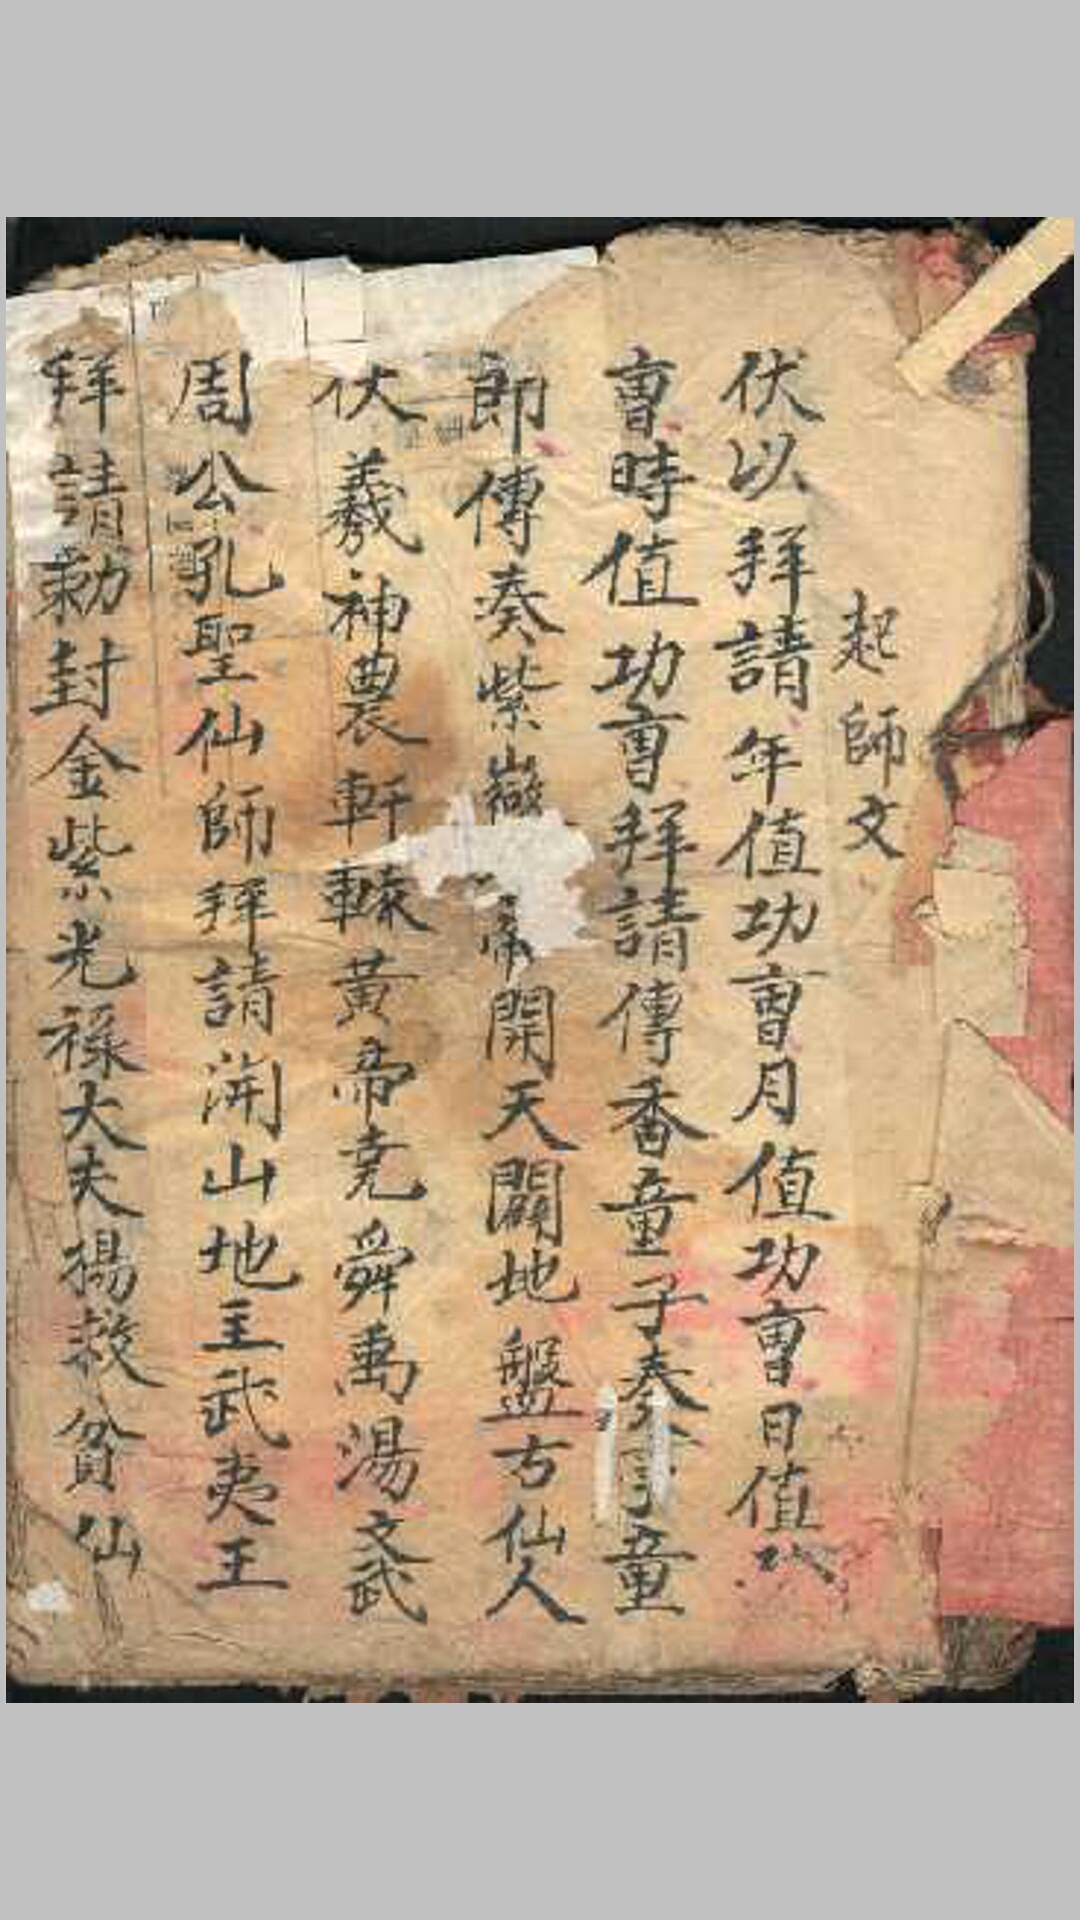 起師文
伏以拜請年值功曹月值功曹日值功
曹時值功曹拜請傳香童子奏童
郎傳奏紫嶽帝開天闢地盤古仙人
伏羲神農軒轅黃帝堯舜禹湯文武
周公孔聖仙師拜請開山地主武夷王
拜請勅封金紫光祿大夫楊救貧仙